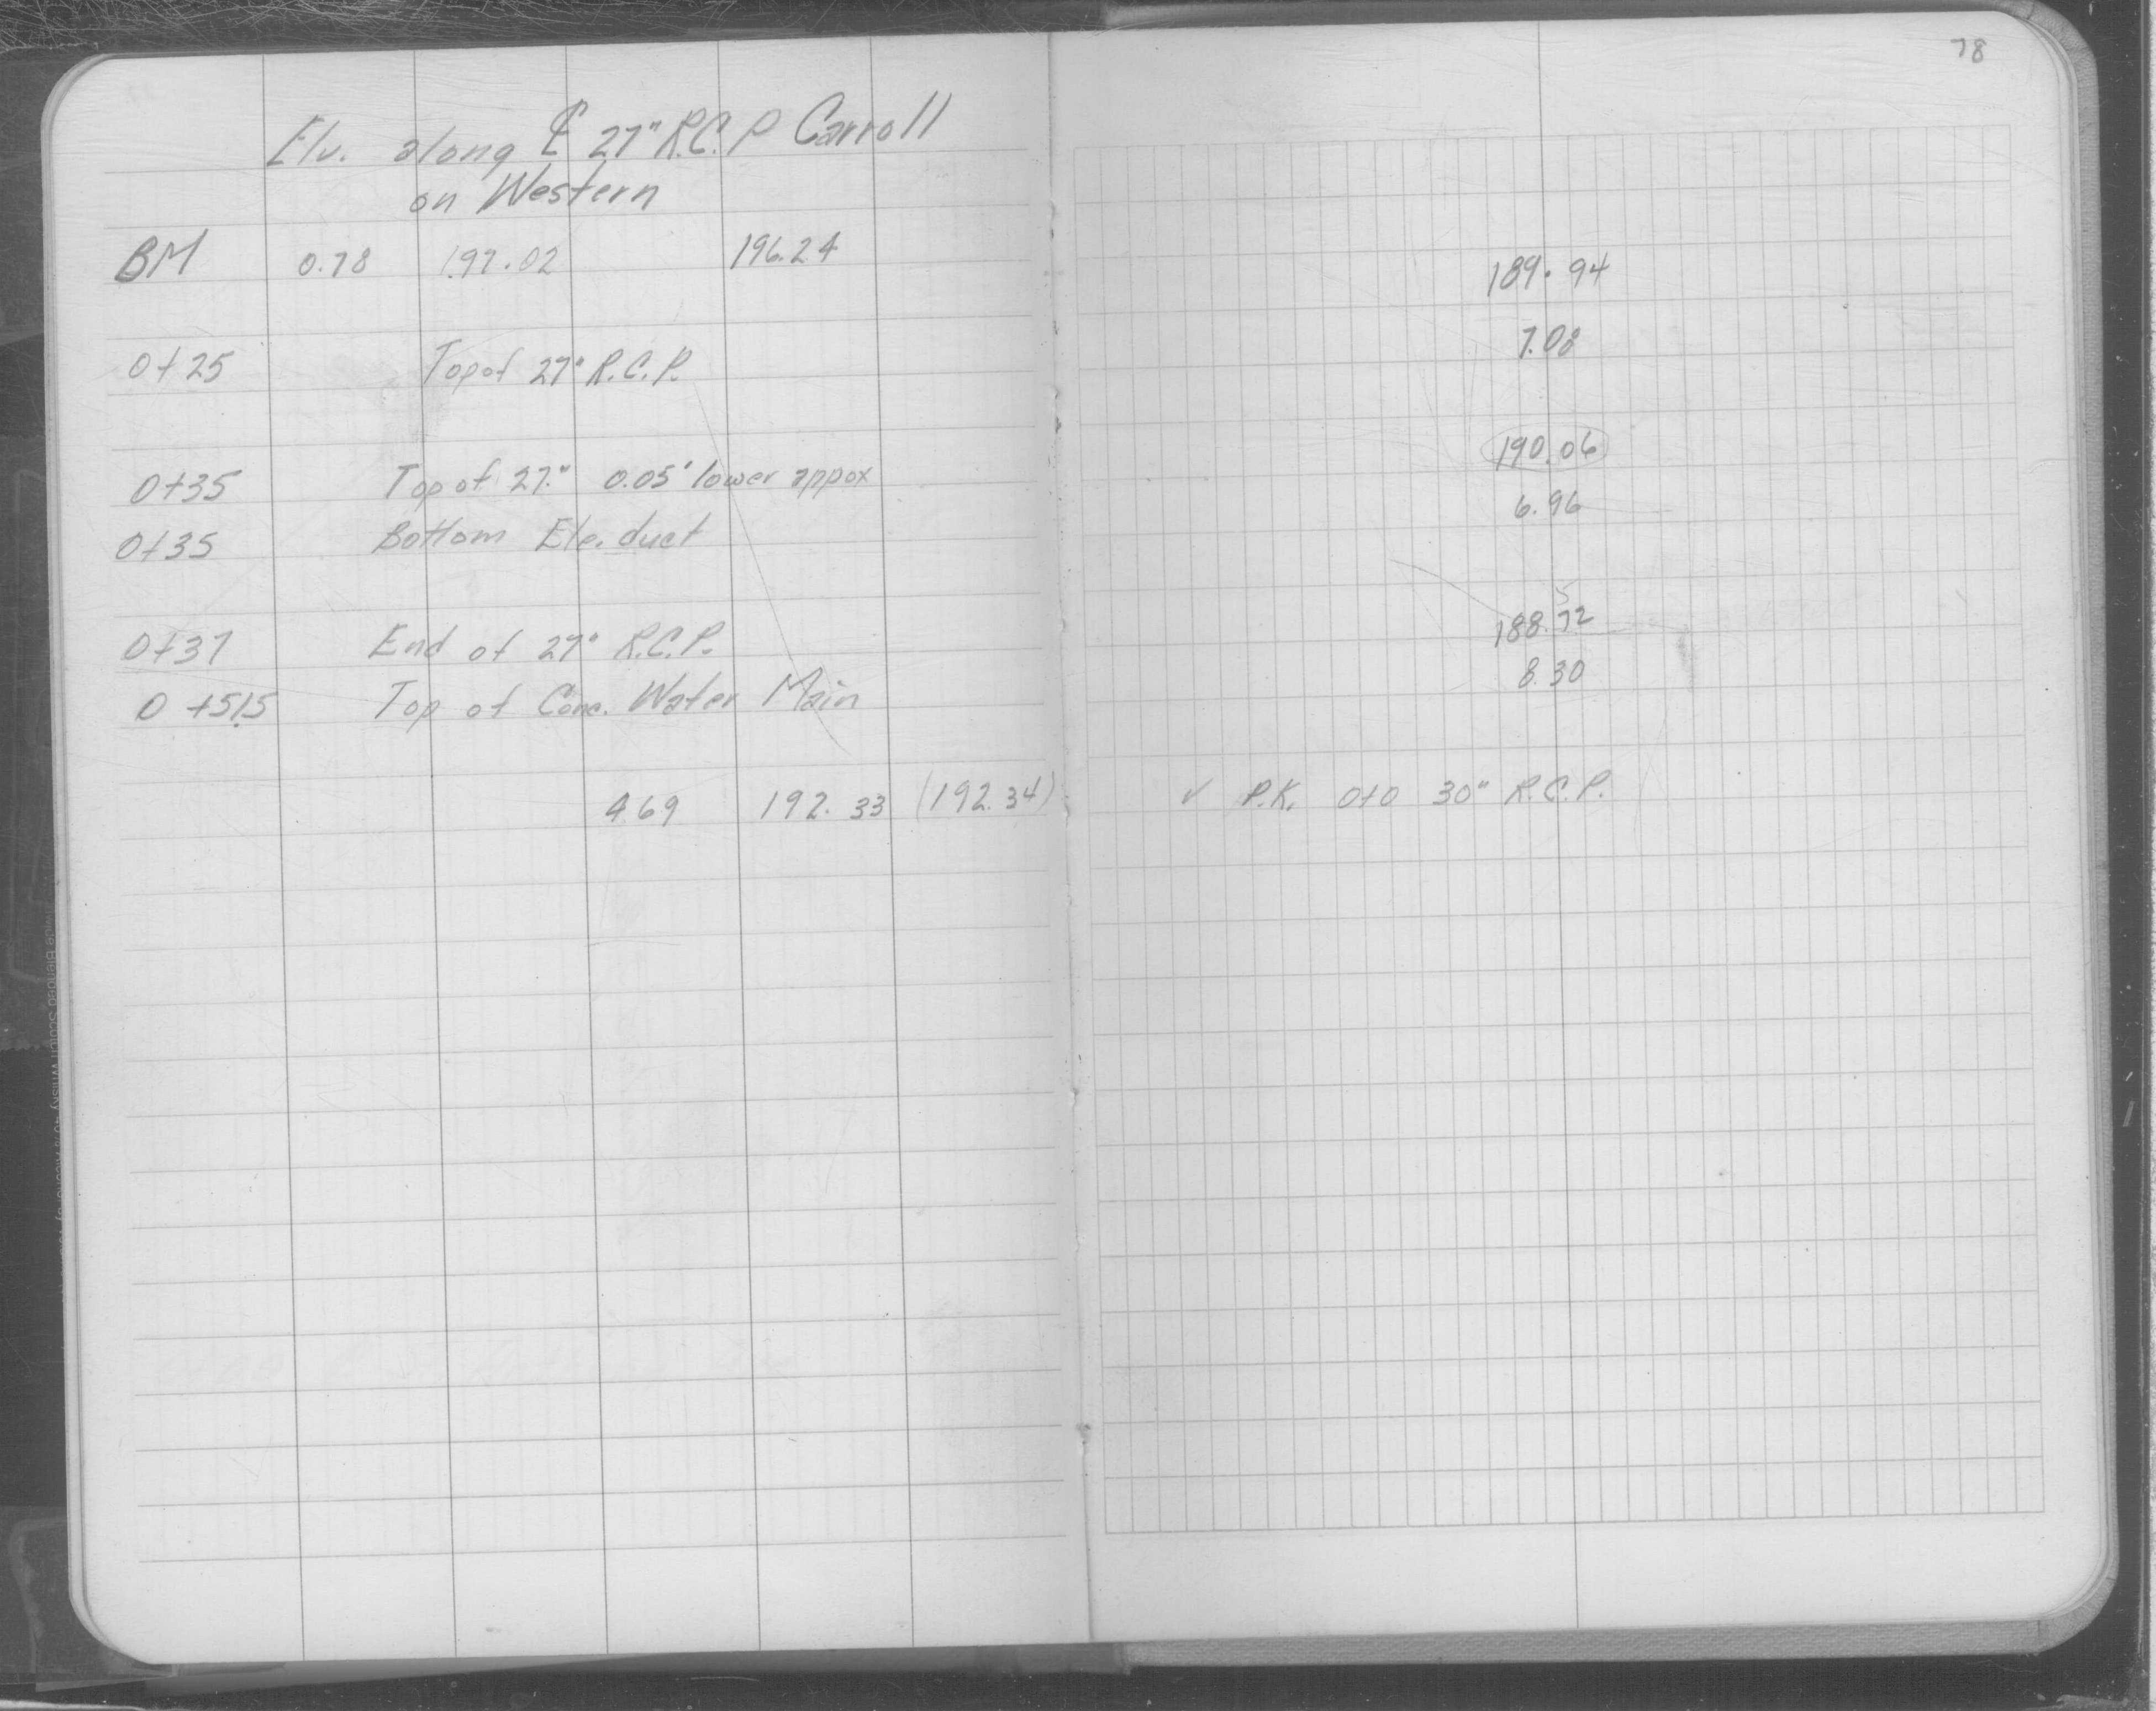 78
Elv. along ℄ 27" R.C.P Carroll
on Western
BM 0.78 197.02 196.24 189.94
0+25 Top of 27" R.C.P. 7.08
190.06
0+35 Top of 27" 0.05' lower appox 6.96
0+35 Bottom Ele. duct
5
0+37 End of 27" R.C.P. 188.72
0+51.5 Top of Conc. Water Main 8.30
4.69 192.33 (192.34) ✓ P.K. 0+0 30" R.C.P.